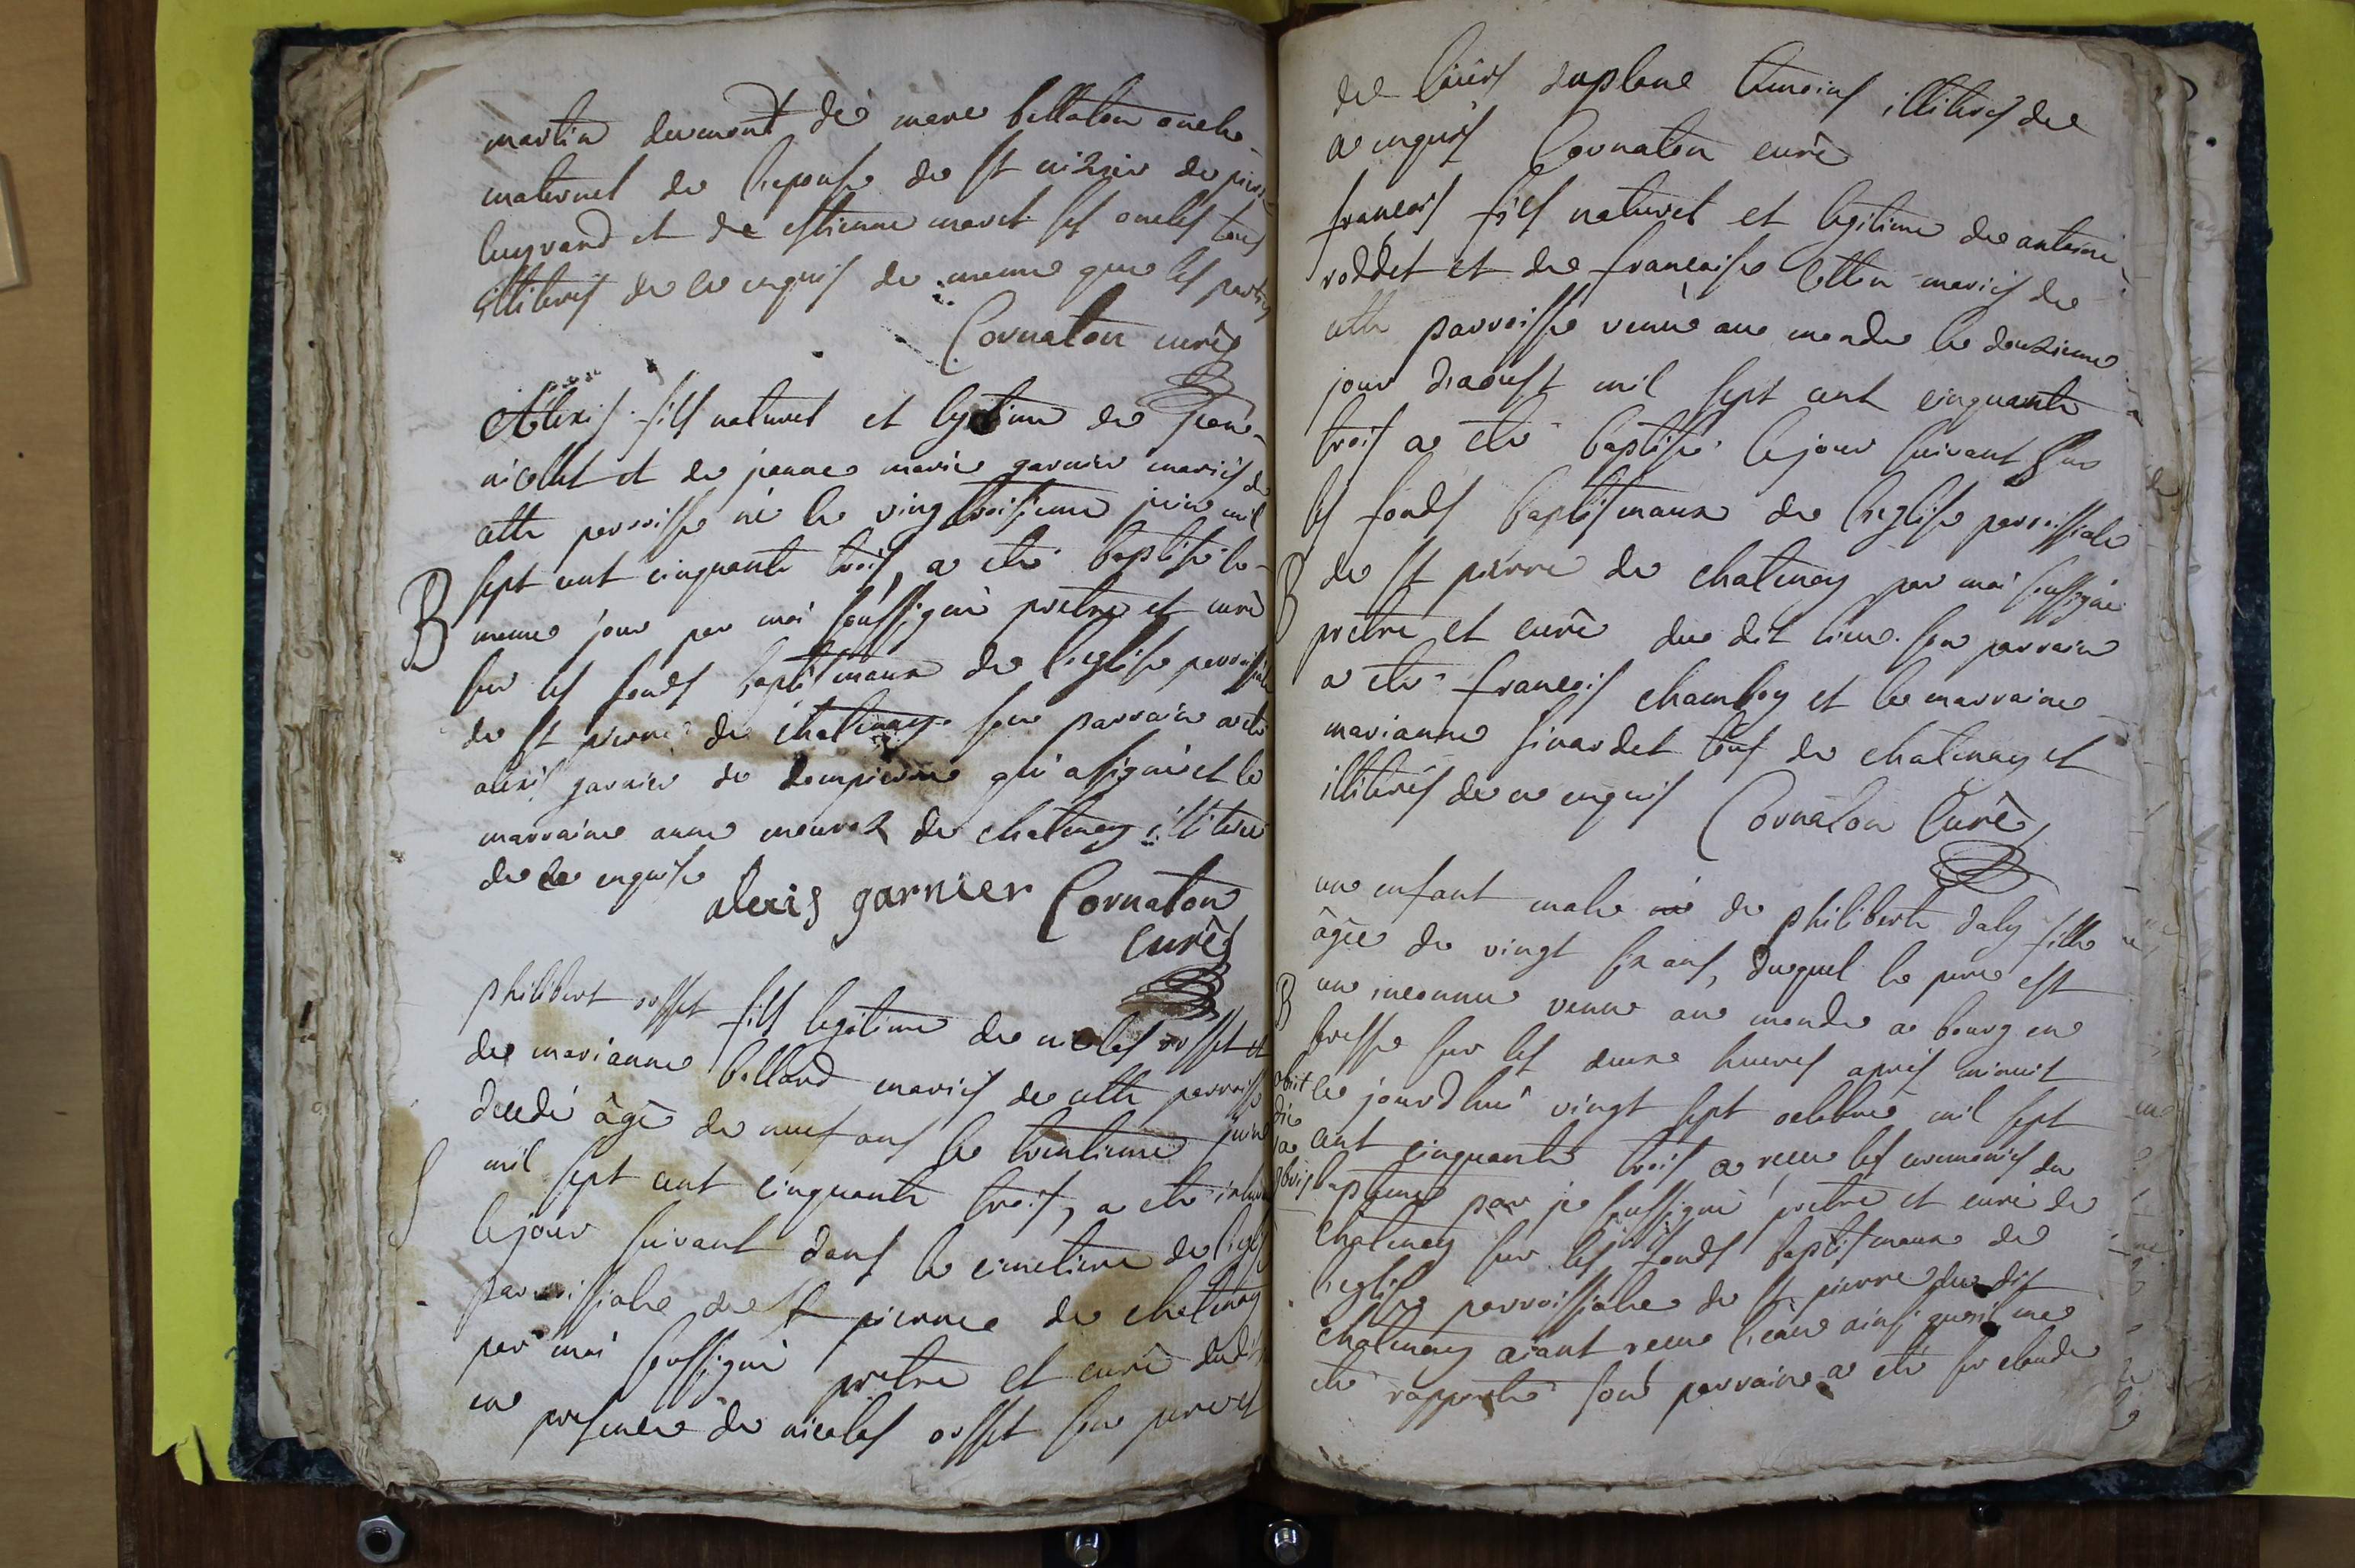 martin dumont de marc billaton oncle
maternel de l'epouse de st nizier de pierre
luyrand et de estienne maret ses oncles tous
illiterés de ce enquis de meme que les parties
Cornaton curé
Alexis fils naturel et legitime de jean
nicollet et de jeanne marie garnier mariés de
cette parroisse né le vingtroisieme juin mil
B sept cent cinquante trois, a eté baptisé le
meme jour par moi soussigné pretre et curé
sur les fonds baptismaux de l'eglise parroissiale
de st pierre de chatenay son parrain a eté
alexis garnier de dompierre qui a signé et la
marraine anne meuraz de chatenay illiterée
de ce enquise
alexis garnier Cornaton
curé
philibert rosset fils legitime de nicolas rosset et
de marianne billand mariés de cette parroisse
decedé âgé de neuf ans le trentieme juin
S mil sept cent cinquante trois, a eté inhumé
le jour suivant dans le cimetiere de l'eglise
parroissiale de st pierre de chatenay
par moi soussigné pretre et curé dudit
en presence de nicolas rosset son pere et
de louis laplane temoins illiterés de
ce enquis Cornaton curé
françois fils naturel et legitime de antoine
roddet et de françoise cotton mariés de
cette parroisse venu au monde le deuxieme
jour d'aoust mil sept cent cinquante
trois a eté baptisé le jour suivant sur
les fonds baptismaux de l'eglise parroissiale
B de st pierre de chatenay par moi soussigné
pretre et curé du dit lieu. son parrain
a eté françois chambry et la marraine
marianne sivardet tous de chatenay et
illiterés de ce enquis Cornaton Curé
un enfant male né de philiberte daly fille
âgée de vingt six ans, duquel le pere est
B un inconnu venu au monde a bourg en
bresse sur les deux heures apres minuit
obiit le jourd'hui vingt sept octobre mil sept
die cent cinquante trois a recu les ceremonies du
bapteme par je soussigné pretre et curé de
chatenay sur les fonds baptismaux de
l'eglise parroissiale de st pierre du dit
chatenay aiant recu l'eau ainsi qu'il me
eté rapporté son parrain a eté sr claude